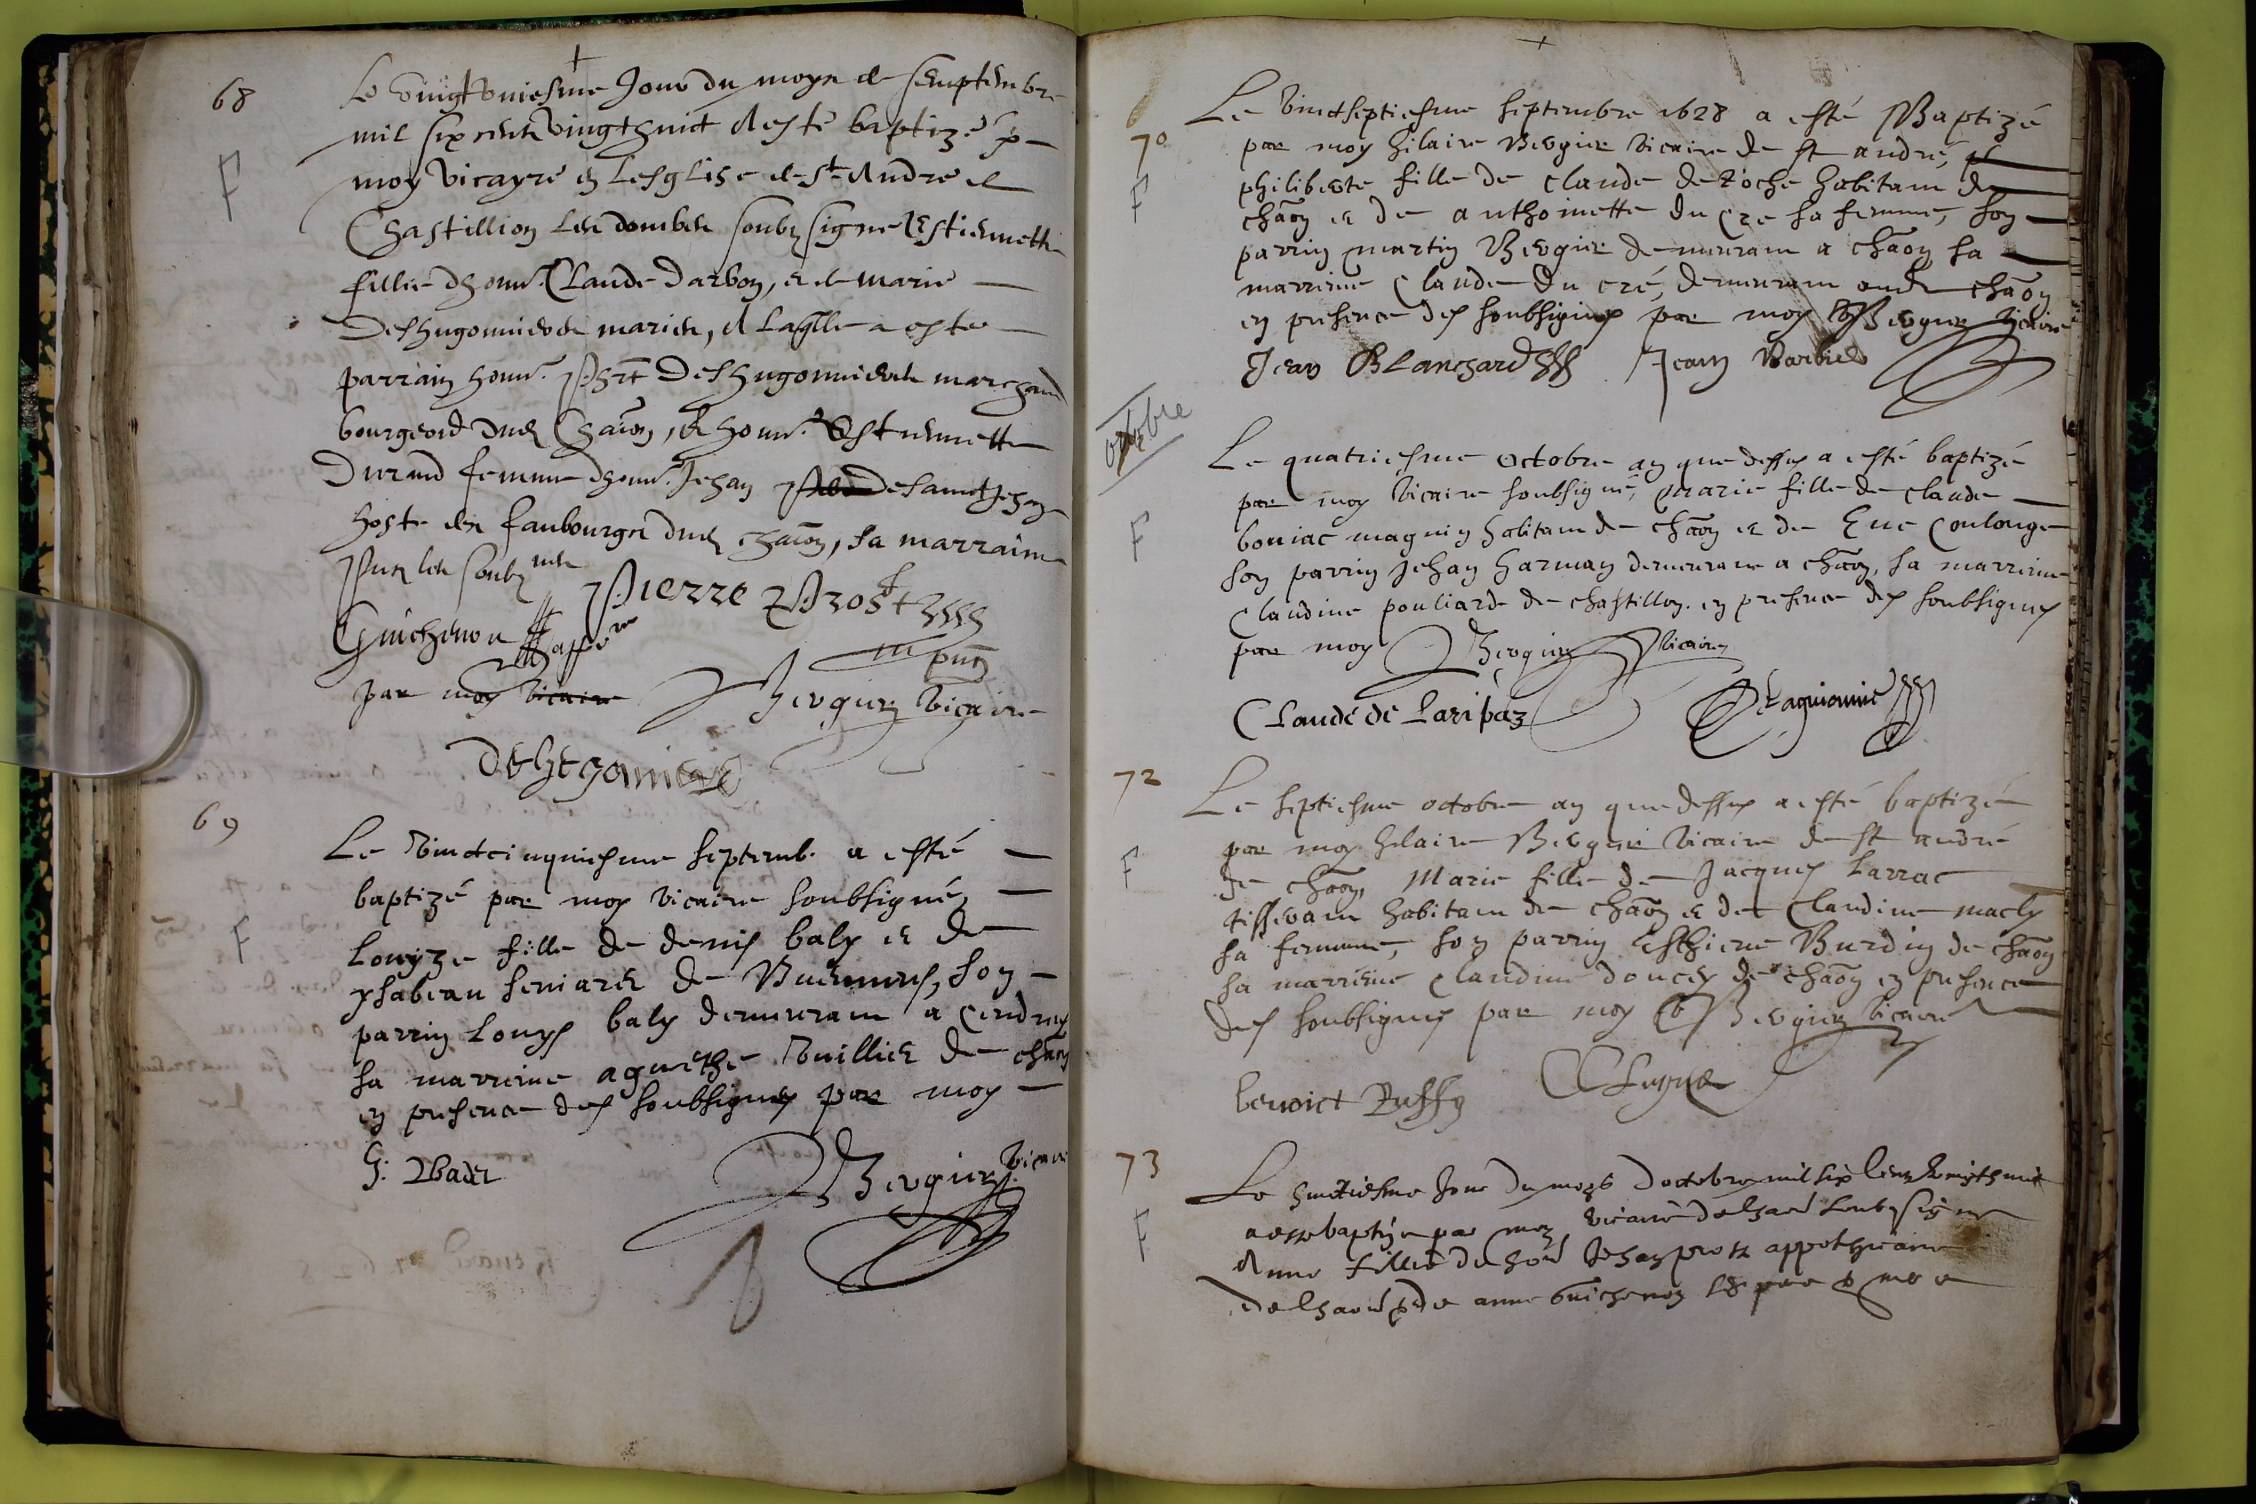 68
Le vingt uniesme Jour du moys de semptembre
mil six cents vingt huict A esté baptizé p
moy vicayre en Lesglise de St Andre de
Chastillion Les dombes soubz signe Estiennette
fillie dhonn. Claude Darbon, et de marie
Deshugonnieres mariés, A laqlle a este
parrain honn. Phrt Deshugonnieres marchand
bourgeois dud Chaon, & honn. Estiennette
Durand femme dhonn. Jehan de sainct Jehan
hoste des faubourgs dud chaon, sa marraine
Pntz les soubz nés
Pierre Prost
Guichenon
pnt
par moy vicaire Bergier vicaire
F
69
Le vindcinquiesme septemb. a esté
baptizé par moy vicaire soubsigné,
Louyze fille de denis baly et de
ysabeau seniard de Buenens, son
parrin Louys baly demeurant a Condrey
sa marreine agnethe Vuillier de chaon
en presence des soubsignes par moy
Bergier vicaire
F
70
Le vindseptiesme septembre 1628 a esté Baptizé
par moy hilaire Bergier vicaire de st andré,
philiberte fille de Claude de Roche habitant de
chaon et de anthoinette du Cre sa femme, son
parrin martin Bergier demeurant a chaon sa
marreine Claude du cré, demeurant aud chaon
en presence des soubsignes par moy Bergier vicaire
Jean Blanchard Jean Barbier
F
octobre
Le quatriesme octobre an que dessus a esté baptizé
par moy vicaire soubsigné, Marie fille de claude
boniac magnin habitant de chaon et de Eue Coulonge
son parrin Jehan harman demeurant a chaon, sa marreine
Claudine pouliard de chastillon. en presence des soubsignes
par moy Bergier vicaire
Claude de Laripaz
F
72
Le septiesme octobre an que dessus a esté baptizé
par moy hilaire Bergier vicaire de st andré
de chaon, Marie fille de Jacques Larrac
tisserant habitant de chaon et de Claudine macly
sa femme, son parrin Esthiene Burdin de chaon
sa marreine Claudine doucey de chaon en presence
des soubsignes par moy Bergier vicaire
benoict Ruffy
F
73
Le huictiesme Jour du moys doctobre mil six Cens vingt huict
a este baptizé par moy vicaire de chaon soubsigne
Anne fillie de hon Jehan prost appothicaire
de chaon & de anne Guichenon
F